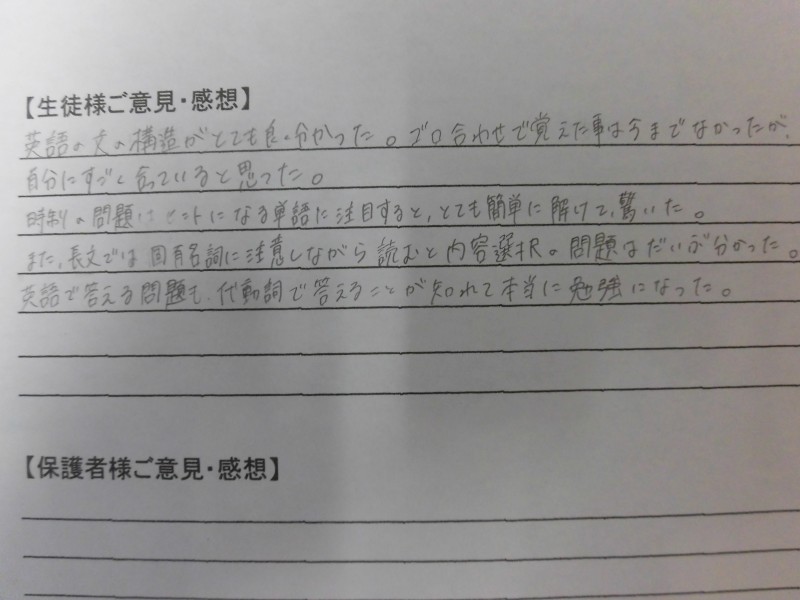 【生徒様ご意見・感想】
英語の文の構造がとても良く分かった。ゴロ合わせで覚えた事は今までなかったが、
自分にすごく合っていると思った。
時制の問題はヒントになる単語に注目すると、とても簡単に解けて、驚いた。
また、長文では固有名詞に注意しながら読むと内容選択の問題はだいぶ分かった。
英語で答える問題も、代動詞で答えることが知れて本当に勉強になった。
【保護者様ご意見・感想】